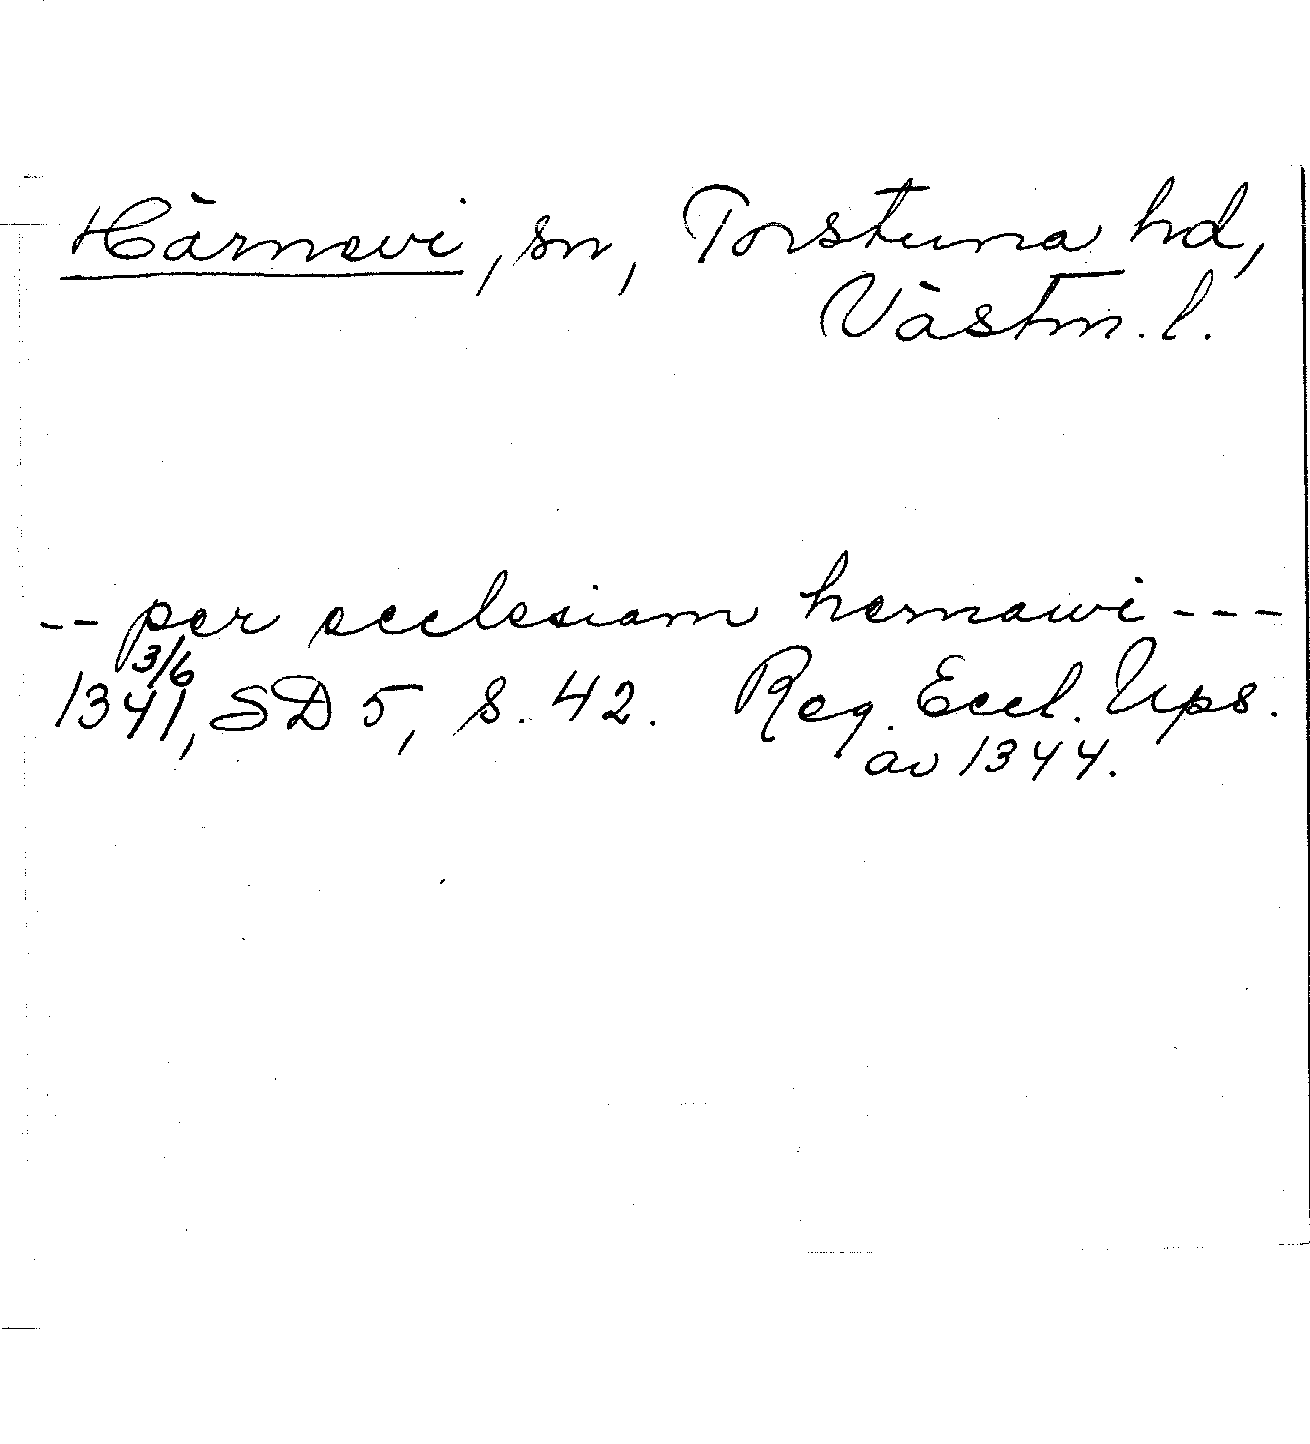 Härnevi, sn, Torstuna hd,
Västm. l.
-- per ecclesiam hernawi ---
3/6
1341, SD 5, s. 42. Reg. Eccl. Ups.
av 1344.